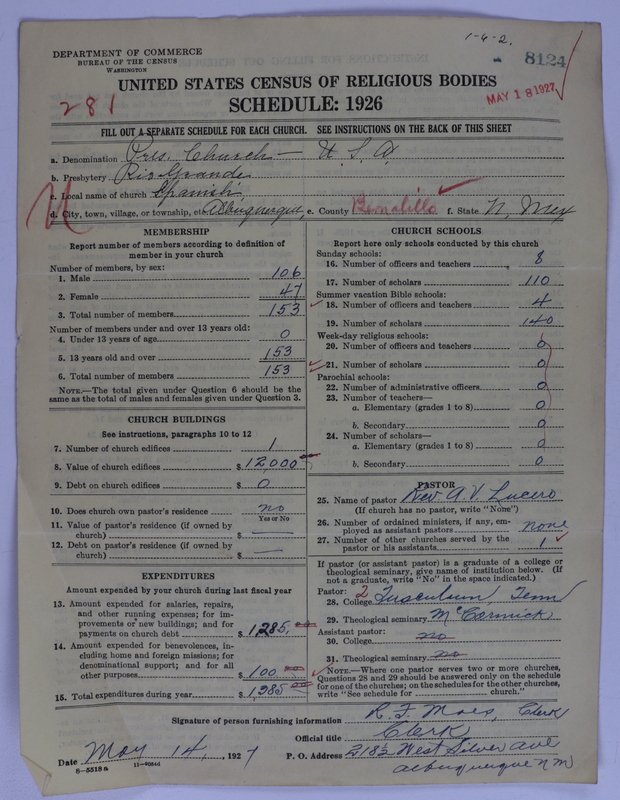 1-6-2.
8124
DEPARTMENT OF COMMERCE
BUREAU OF THE CENSUS
WASHINGTON
UNITED STATES CENSUS OF RELIGIOUS BODIES
281
SCHEDULE: 1926
MAY 18 1927
FILL OUT A SEPARATE SCHEDULE FOR EACH CHURCH. SEE INSTRUCTIONS ON THE BACK OF THIS SHEET
a. Denomination Pres. Church — U. S. A.
b. Presbytery Rio Grande
c. Local name of church Spanish
d. City, town, village, or township, etc. Albuquerque, e. County Bernalillo f. State N. Mex
MEMBERSHIP
Report number of members according to definition of
member in your church
Number of members, by sex:
1. Male 106
2. Female 47
3. Total number of members 153
Number of members under and over 13 years old:
4. Under 13 years of age 0
5. 13 years old and over 153
6. Total number of members 153
NOTE.—The total given under Question 6 should be the
same as the total of males and females given under Question 3.
CHURCH BUILDINGS
See instructions, paragraphs 10 to 12
7. Number of church edifices 1
8. Value of church edifices $ 12,000
9. Debt on church edifices $ 0
10. Does church own pastor's residence no
Yes or No
11. Value of pastor's residence (if owned by
church) $ —
12. Debt on pastor's residence (if owned by
church) $ —
EXPENDITURES
Amount expended by your church during last fiscal year
13. Amount expended for salaries, repairs,
and other running expenses; for im-
provements or new buildings; and for
payments on church debt $ 1,285.00
14. Amount expended for benevolences, in-
cluding home and foreign missions; for
denominational support; and for all
other purposes $ 100 00
15. Total expenditures during year $ 1,385 00
CHURCH SCHOOLS
Report here only schools conducted by this church
Sunday schools:
16. Number of officers and teachers 8
17. Number of scholars 110
Summer vacation Bible schools:
18. Number of officers and teachers 4
19. Number of scholars 140
Week-day religious schools:
20. Number of officers and teachers 0
21. Number of scholars 0
Parochial schools:
22. Number of administrative officers 0
23. Number of teachers—
a. Elementary (grades 1 to 8) 0
b. Secondary 0
24. Number of scholars—
a. Elementary (grades 1 to 8) 0
b. Secondary 0
PASTOR
25. Name of pastor Rev. A. V. Lucero
(If church has no pastor, write "None")
26. Number of ordained ministers, if any, em-
ployed as assistant pastors none
27. Number of other churches served by the
pastor or his assistants 1
If pastor (or assistant pastor) is a graduate of a college or
theological seminary, give name of institution below. (If
not a graduate, write "No" in the space indicated.)
Pastor: 2
28. College Tusculum, Tenn
29. Theological seminary McCormick
Assistant pastor:
30. College no
31. Theological seminary no
NOTE.—Where one pastor serves two or more churches,
Questions 28 and 29 should be answered only on the schedule
for one of the churches; on the schedules for the other churches,
write "See schedule for church."
Signature of person furnishing information R. F. Maes, Clerk
Official title Clerk
Date May 14, 1927 P. O. Address 218½ West Silver ave
6-5518a
albuquerque N M